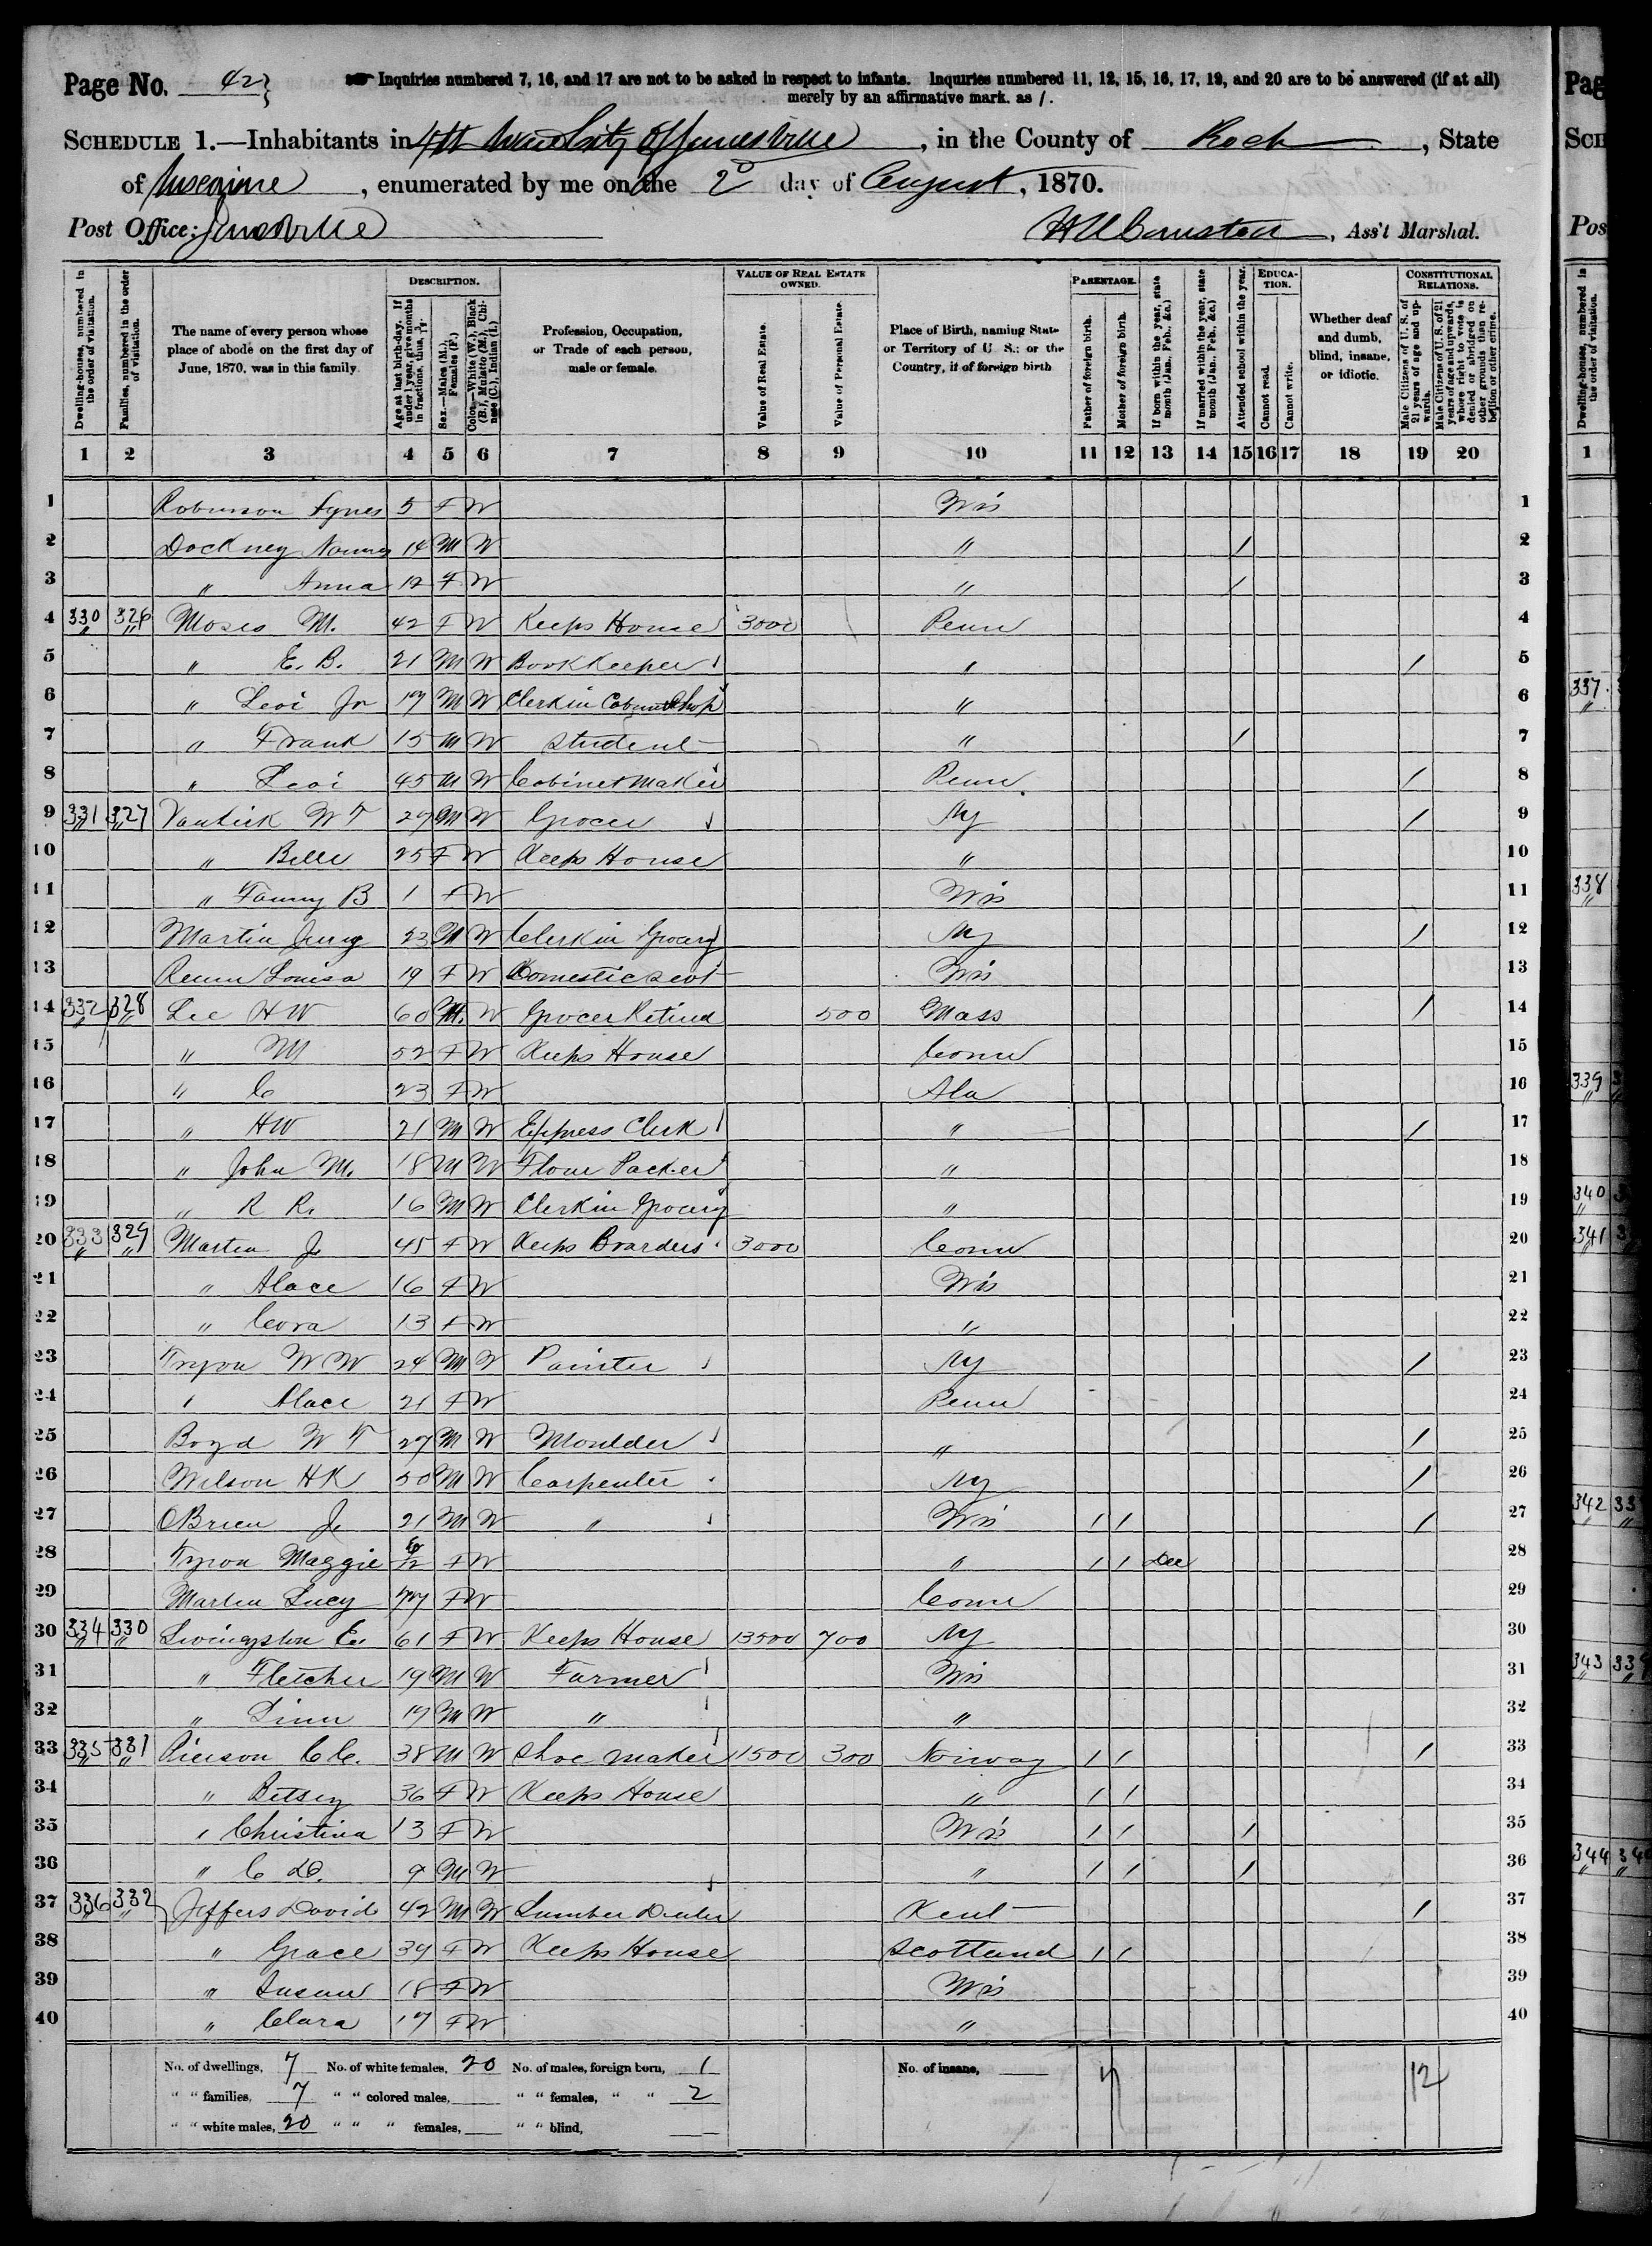 Page No. 42 Inquiries numbered 7, 16, and 17 are not to be asked in respect to infants. Inquiries numbered 11, 12, 15, 16, 17, 19, and 20 are to be answered (if at all)
merely by an affirmative mark, as /.
SCHEDULE 1.—Inhabitants in 4th Ward City of Janesville, in the County of Rock, State
of Wisconsin, enumerated by me on the 2d day of August, 1870.
Post Office: Janesville , Ass't Marshal.
DESCRIPTION. VALUE OF REAL ESTATE OWNED. PARENTAGE. EDUCATION. CONSTITUTIONAL RELATIONS.
Dwelling-houses, numbered in the order of visitation.
Families, numbered in the order of visitation.
The name of every person whose place of abode on the first day of June, 1870, was in this family.
Age at last birth-day. If under 1 year, give months in fractions, thus, 3/12.
Sex.—Males (M.), Females (F.)
Color.—White (W.), Black (B.), Mulatto (M.), Chinese (C.), Indian (I.)
Profession, Occupation, or Trade of each person, male or female.
Value of Real Estate.
Value of Personal Estate.
Place of Birth, naming State or Territory of U. S.; or the Country, if of foreign birth
Father of foreign birth.
Mother of foreign birth.
If born within the year, state month (Jan., Feb., &c.)
If married within the year, state month (Jan., Feb., &c.)
Attended school within the year.
Cannot read.
Cannot write.
Whether deaf and dumb, blind, insane, or idiotic.
Male Citizens of U. S. of 21 years of age and upwards.
Male Citizens of U. S. of 21 years of age and upwards, whose right to vote is denied or abridged on other grounds than rebellion or other crime.
1 2 3 4 5 6 7 8 9 10 11 12 13 14 15 16 17 18 19 20
1 Robinson Agnes 5 F W Wis 1
2 Dockney 14 M W " / 2
3 " Anna 12 F W " / 3
4 330 326 Moses M. 42 F W Keeps House 3000 Penn 4
5 " E. B. 21 M W Book Keeper " / 5
6 " Levi Jr 17 M W Clerk in Cabinet Shop " 6
7 " Frank 15 M W Student " / 7
8 " Levi 45 M W Cabinet Maker Penn. / 8
9 331 327 W T 29 M W Grocer Ny / 9
10 " Belle 25 F W Keeps House " 10
11 " Fanny B 1 F W Wis 11
12 Martin 23 M W Clerk in Grocery Ny / 12
13 Louisa 19 F W Domestic Sevt Wis 13
14 332 328 Lee H W 60 M. W Grocer Retired 500 Mass / 14
15 " M 52 F W Keeps House Conn 15
16 " C 23 F W Ala 16
17 " H W 21 M W Express Clerk " / 17
18 " John M. 18 M W Flour Packer " 18
19 " R R. 16 M W Clerk in Grocery " 19
20 333 329 Martin J. 45 F W Keeps Boarders 3000 Conn 20
21 " Alace 16 F W Wis 21
22 " Cora 13 F W " 22
23 Tryon W W 24 M W Painter Ny / 23
24 " Alace 21 F W Penn 24
25 Boyd W T 27 M W Moulder " / 25
26 Wilson H K 50 M W Carpenter Ny / 26
27 OBrien J. 21 M W " Wis / / / 27
28 Tryon Maggie 6/12 F W " / / Dec 28
29 Martin Lucy 77 F W Conn 29
30 334 330 Livingston E. 61 F W Keeps House 13500 700 Ny 30
31 " Fletcher 19 M W Farmer Wis 31
32 " Linn 17 M W " " 32
33 335 331 Pierson C C. 38 M W Shoe Maker 1500 300 Norway / / / 33
34 " Betsey 36 F W Keeps House " / / 34
35 " Christina 13 F W Wis / / / 35
36 " C D. 9 M W " / / / 36
37 336 332 Jeffers David 42 M W Lumber Dealer Kent / 37
38 " Grace 39 F W Keeps House Scotland / / 38
39 " Susan 18 F W Wis 39
40 " Clara 17 F W " 40
No. of dwellings, 7 No. of white females, 20 No. of males, foreign born, 1 No. of insane, 12
" " families, 7 " " colored males, " " females, " " 2
" " white males, 20 " " " females, " " blind,
Pag
SCH
Pos
Dwelling-houses, numbered in the order of visitation.
1
337
338
339
340
341
342 33
343 33
344 34